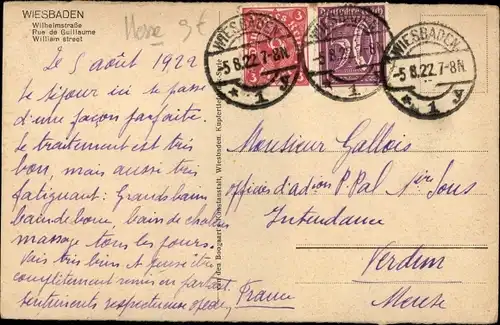 WIESBADEN
Wilhelmstraße
Rue de Guillaume
William street
Hesse 3€
WIESBADEN
-5.8.22.7-8N
* 1 y
Deutsches Reich
WIESBADEN
-5.8.22.7-8N
* 1 y
Le 5 août 1922
Le séjour ici se passe
d'une façon parfaite.
Le traitement est très
bon, mais aussi très
fatiguant: Grands bains
bain de boue, bain de chaleur
massage tous les jours.
Vais très bien et pense être
complètement remis en partant.
sentiments respectueuse
Monsieur Gallois
officier d'adon P. Pal
Intendance
Verdun
Meuse
France
Wiesbaden. Kupfertief